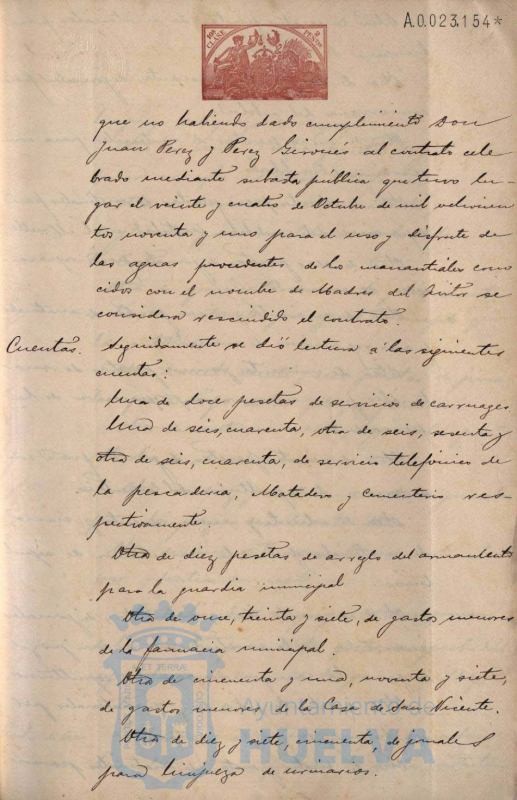 10ª CLASE 2 PESETAS
A.0.023.154*
que no habiendo dado cumplimiento Don
Juan Perez y Perez Gironés al contrato cele
brado mediante subasta pública que tuvo lu-
gar el veinte y cuatro de Octubre de mil ochocien
tos noventa y uno para el uso y disfrute de
las aguas procedentes de los manantiales cono
cidos con el nombre de Madres del Intor se
considera rescindido el contrato.
Cuentas. Seguidamente se dió lectura á las siguientes
cuentas:
Una de doce pesetas de servicios de carruages
Una de seis, cuarenta, otra de seis, sesenta y
otra de seis, cuarenta, de servicio telefónico de
la pescaderia, Matadero y Cementerio res-
pectivamente.
Otra de diez pesetas de arreglo del armamento
para la guardia municipal
Otra de once, treinta y siete, de gastos menores
de la farmacia municipal.
Otra de cincuenta y una, noventa y siete,
de gastos menores de la Casa de San Vicente.
Otra de diez y siete, cincuenta, de jornales
para limpieza de urinarios.
Ayuntamiento de
HUELVA